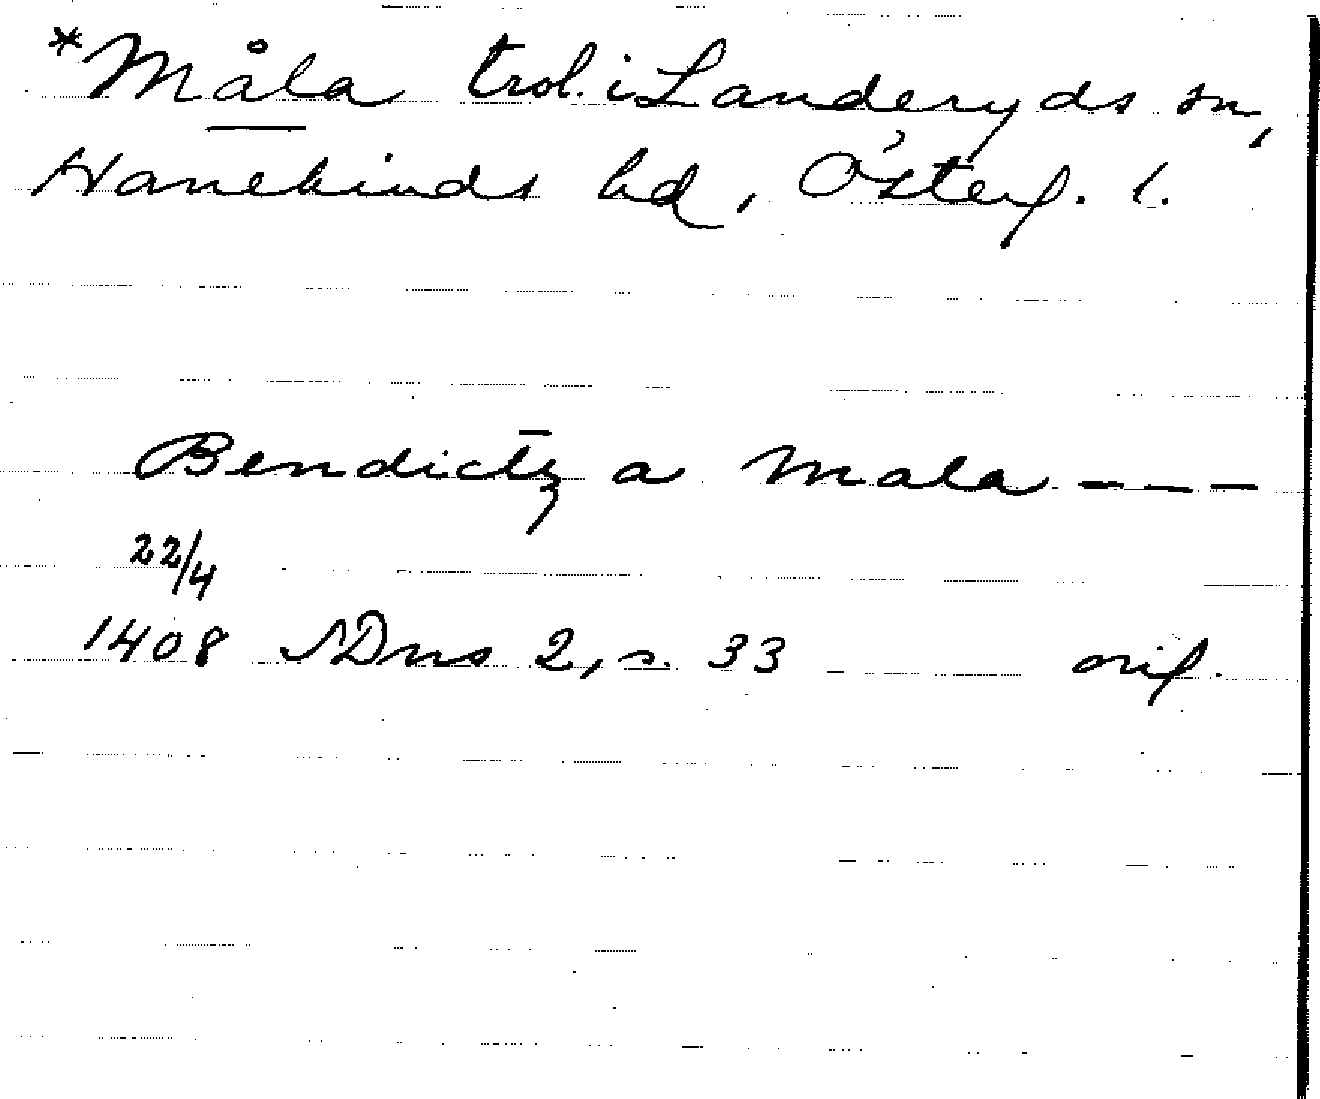 *Måla trol. i Landeryds sn,
Hanekinds hd, Österg. l.
Bendictꝫ a mala ---
22/4
1408 SDns 2, s. 33 orig.